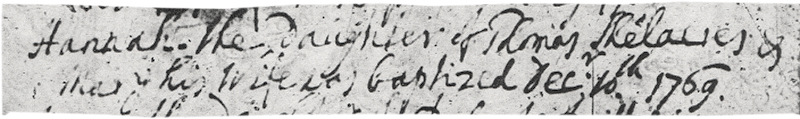 Hannah the Daughter of Thomas Shelacres &
Mary his Wife was baptized Decr 10th 1769.